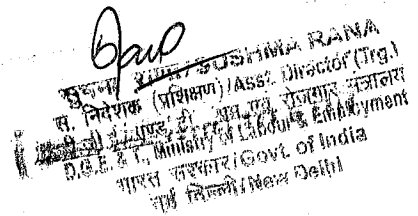 सुषमा राणा/SUSHMA RANA
स. निदेशक (प्रशिक्षण)/Asst. Director (Trg.)
रोजगार मंत्रालय
D.G.E. & T., Ministry of Labour & Employment
भारत सरकार/Govt. of India
नई दिल्ली/New Delhi